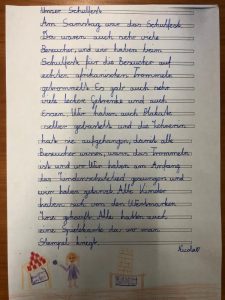 Unser Schulfest
Am Samstag war das Schulfest.
Da waren auch sehr viele
Besucher, und wir haben beim
Schulfest für die Besucher auf
echten afrikanischen Trommeln
getrommelt. Es gab auch sehr
viele leckere Getränke und auch
Essen. Wir haben auch Plakate
selber gebastelt und die Lehrerin
hate sie aufgehangen, damit alle
Besucher wissen, wann das Trommeln
ist und wir. Wir haben am Anfang
das gesungen und
wir haben getanzt. Alle Kinder
haben sich von den Wertmarken
gekauft. Alle hatten auch
eine Spielekarte da wo man
Stempel kriegt.